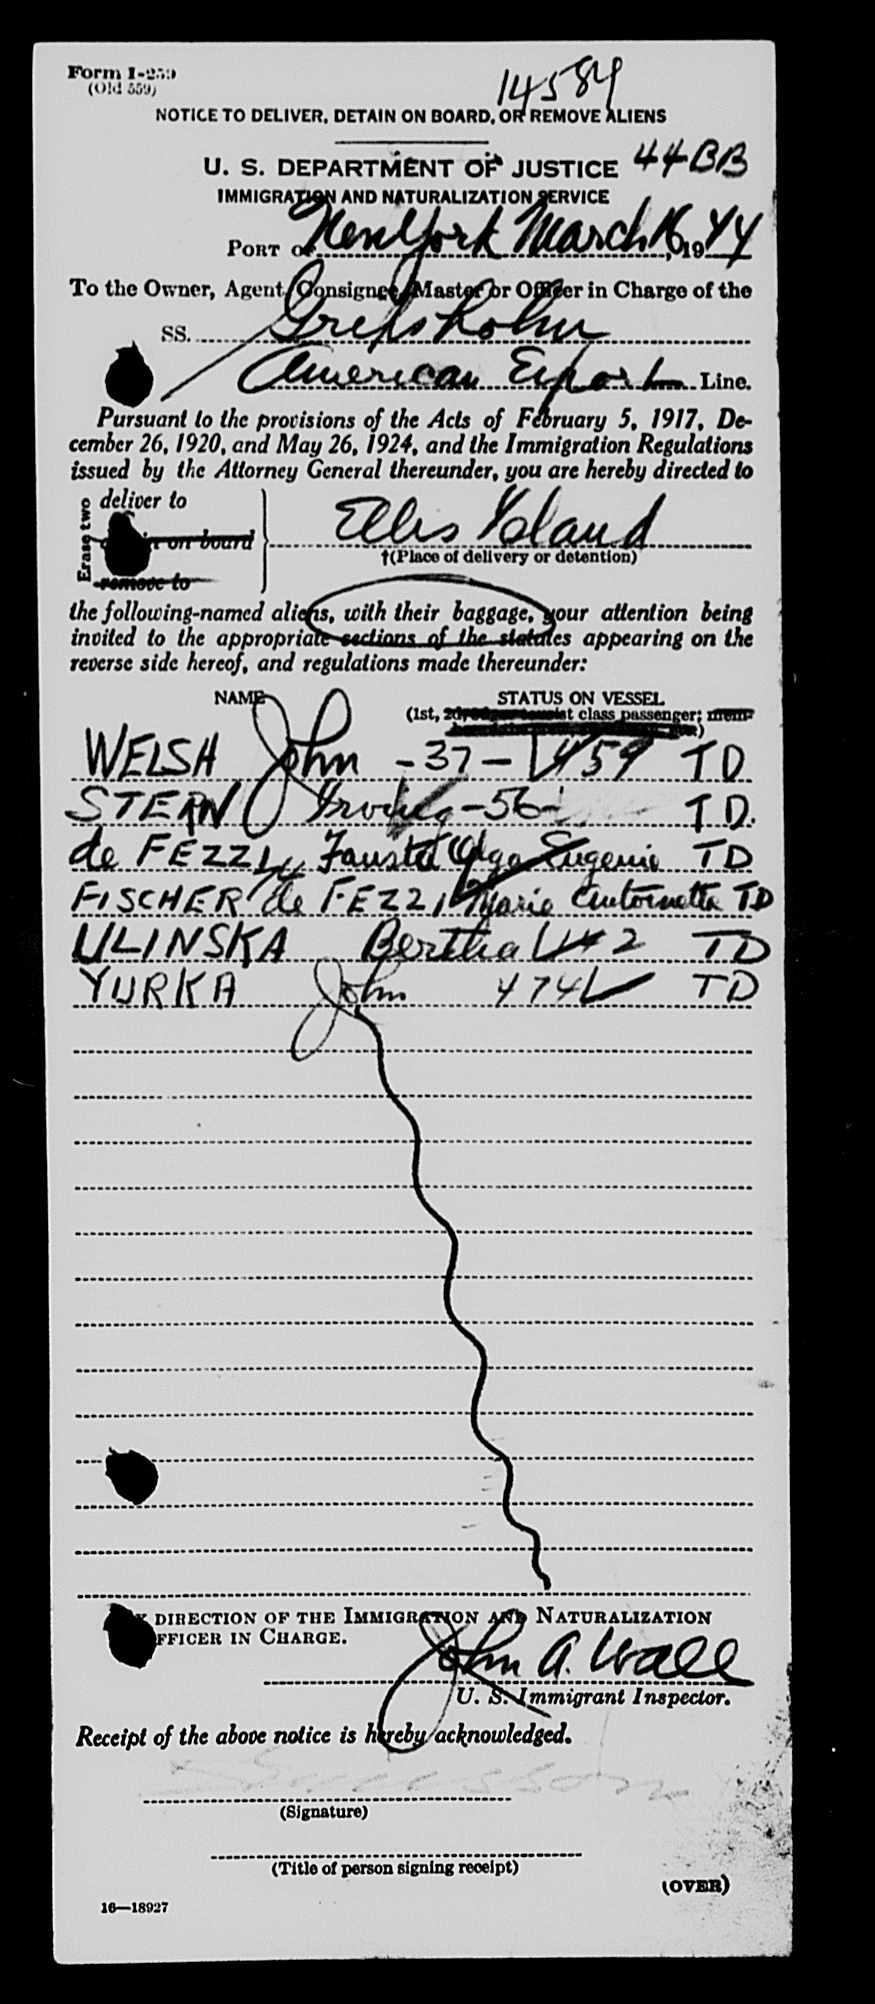 Form I-259
(Old 559)
14584
NOTICE TO DELIVER, DETAIN ON BOARD, OR REMOVE ALIENS
U. S. DEPARTMENT OF JUSTICE 44BB
IMMIGRATION AND NATURALIZATION SERVICE
PORT of New York March 16, 1944
To the Owner, Agent, Consignee, Master or Officer in Charge of the
SS. Gripsholm
American Export Line.
Pursuant to the provisions of the Acts of February 5, 1917, De-
cember 26, 1920, and May 26, 1924, and the Immigration Regulations
issued by the Attorney General thereunder, you are hereby directed to
Erase two
deliver to
on board
remove to
Ellis Island
†(Place of delivery or detention)
the following-named aliens, with their baggage, your attention being
invited to the appropriate sections of the statutes appearing on the
reverse side hereof, and regulations made thereunder:
NAME STATUS ON VESSEL
(1st, class passenger; mem-
WELSH John - 37 - 459 TD
STERN Irving - 56 - TD.
de FEZZI Fausta Olga Eugenie TD
FISCHER de FEZZI, Marie Antoinetta TD
ULINSKA Bertha 2 TD
YURKA John 474 TD
DIRECTION OF THE IMMIGRATION AND NATURALIZATION
OFFICER IN CHARGE.
John A. Wall
U. S. Immigrant Inspector.
Receipt of the above notice is hereby acknowledged.
(Signature)
(Title of person signing receipt)
(OVER)
16—18927